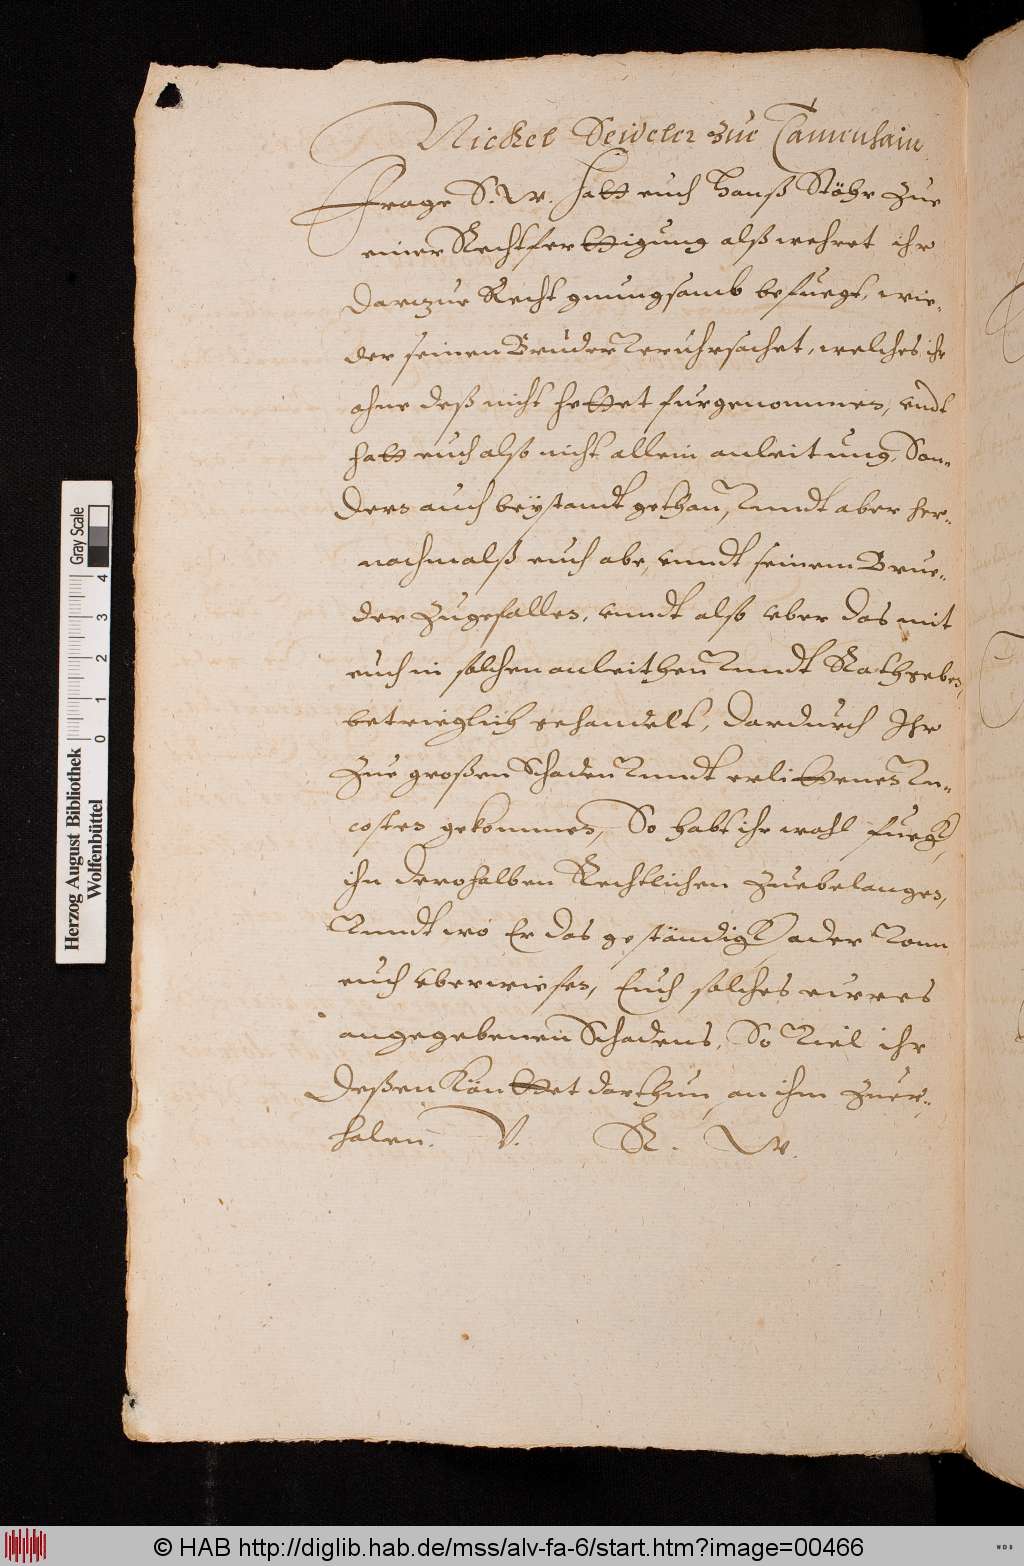 Nickel Seideler zue Tannenhain
Frage S. W. Hatt euch Hanß Stöhr zue
einer Rechtferttigung alß wehret ihr
darzue Recht gnungsamb befuegt, wie-
der seinen Bruder veruhrsachet, welches ihr
ohne deß nicht hettet furgenommen, undt
hatt euch also nicht allein anleitung, Son-
ders auch beÿstandt gethan, Vnndt aber her-
nachmalß euch abe, unndt seinem Brue-
der zugefallen, unndt also uber das mit
euch in solchen anleithen Vnndt Rathgeben,
betrieglich gehandelt, dardurch Ihr
zue großen Schaden Vnndt erlittenes Vn-
costen gekommen, So habt ihr wohl fueg,
ihn derohalben Rechtlichen zuebelangen,
Vnndt wo Er das geständig oder Vonn
euch uberwiesen, Euch solches eures
angegebenen Schadens, So Viel ihr
deßen könttet darthun, an ihm zuer-
holen. V. R. W.
Herzog August Bibliothek
Wolfenbüttel
Gray Scale
0 1 2 3 4
© HAB http://diglib.hab.de/mss/alv-fa-6/start.htm?image=00466
WDB